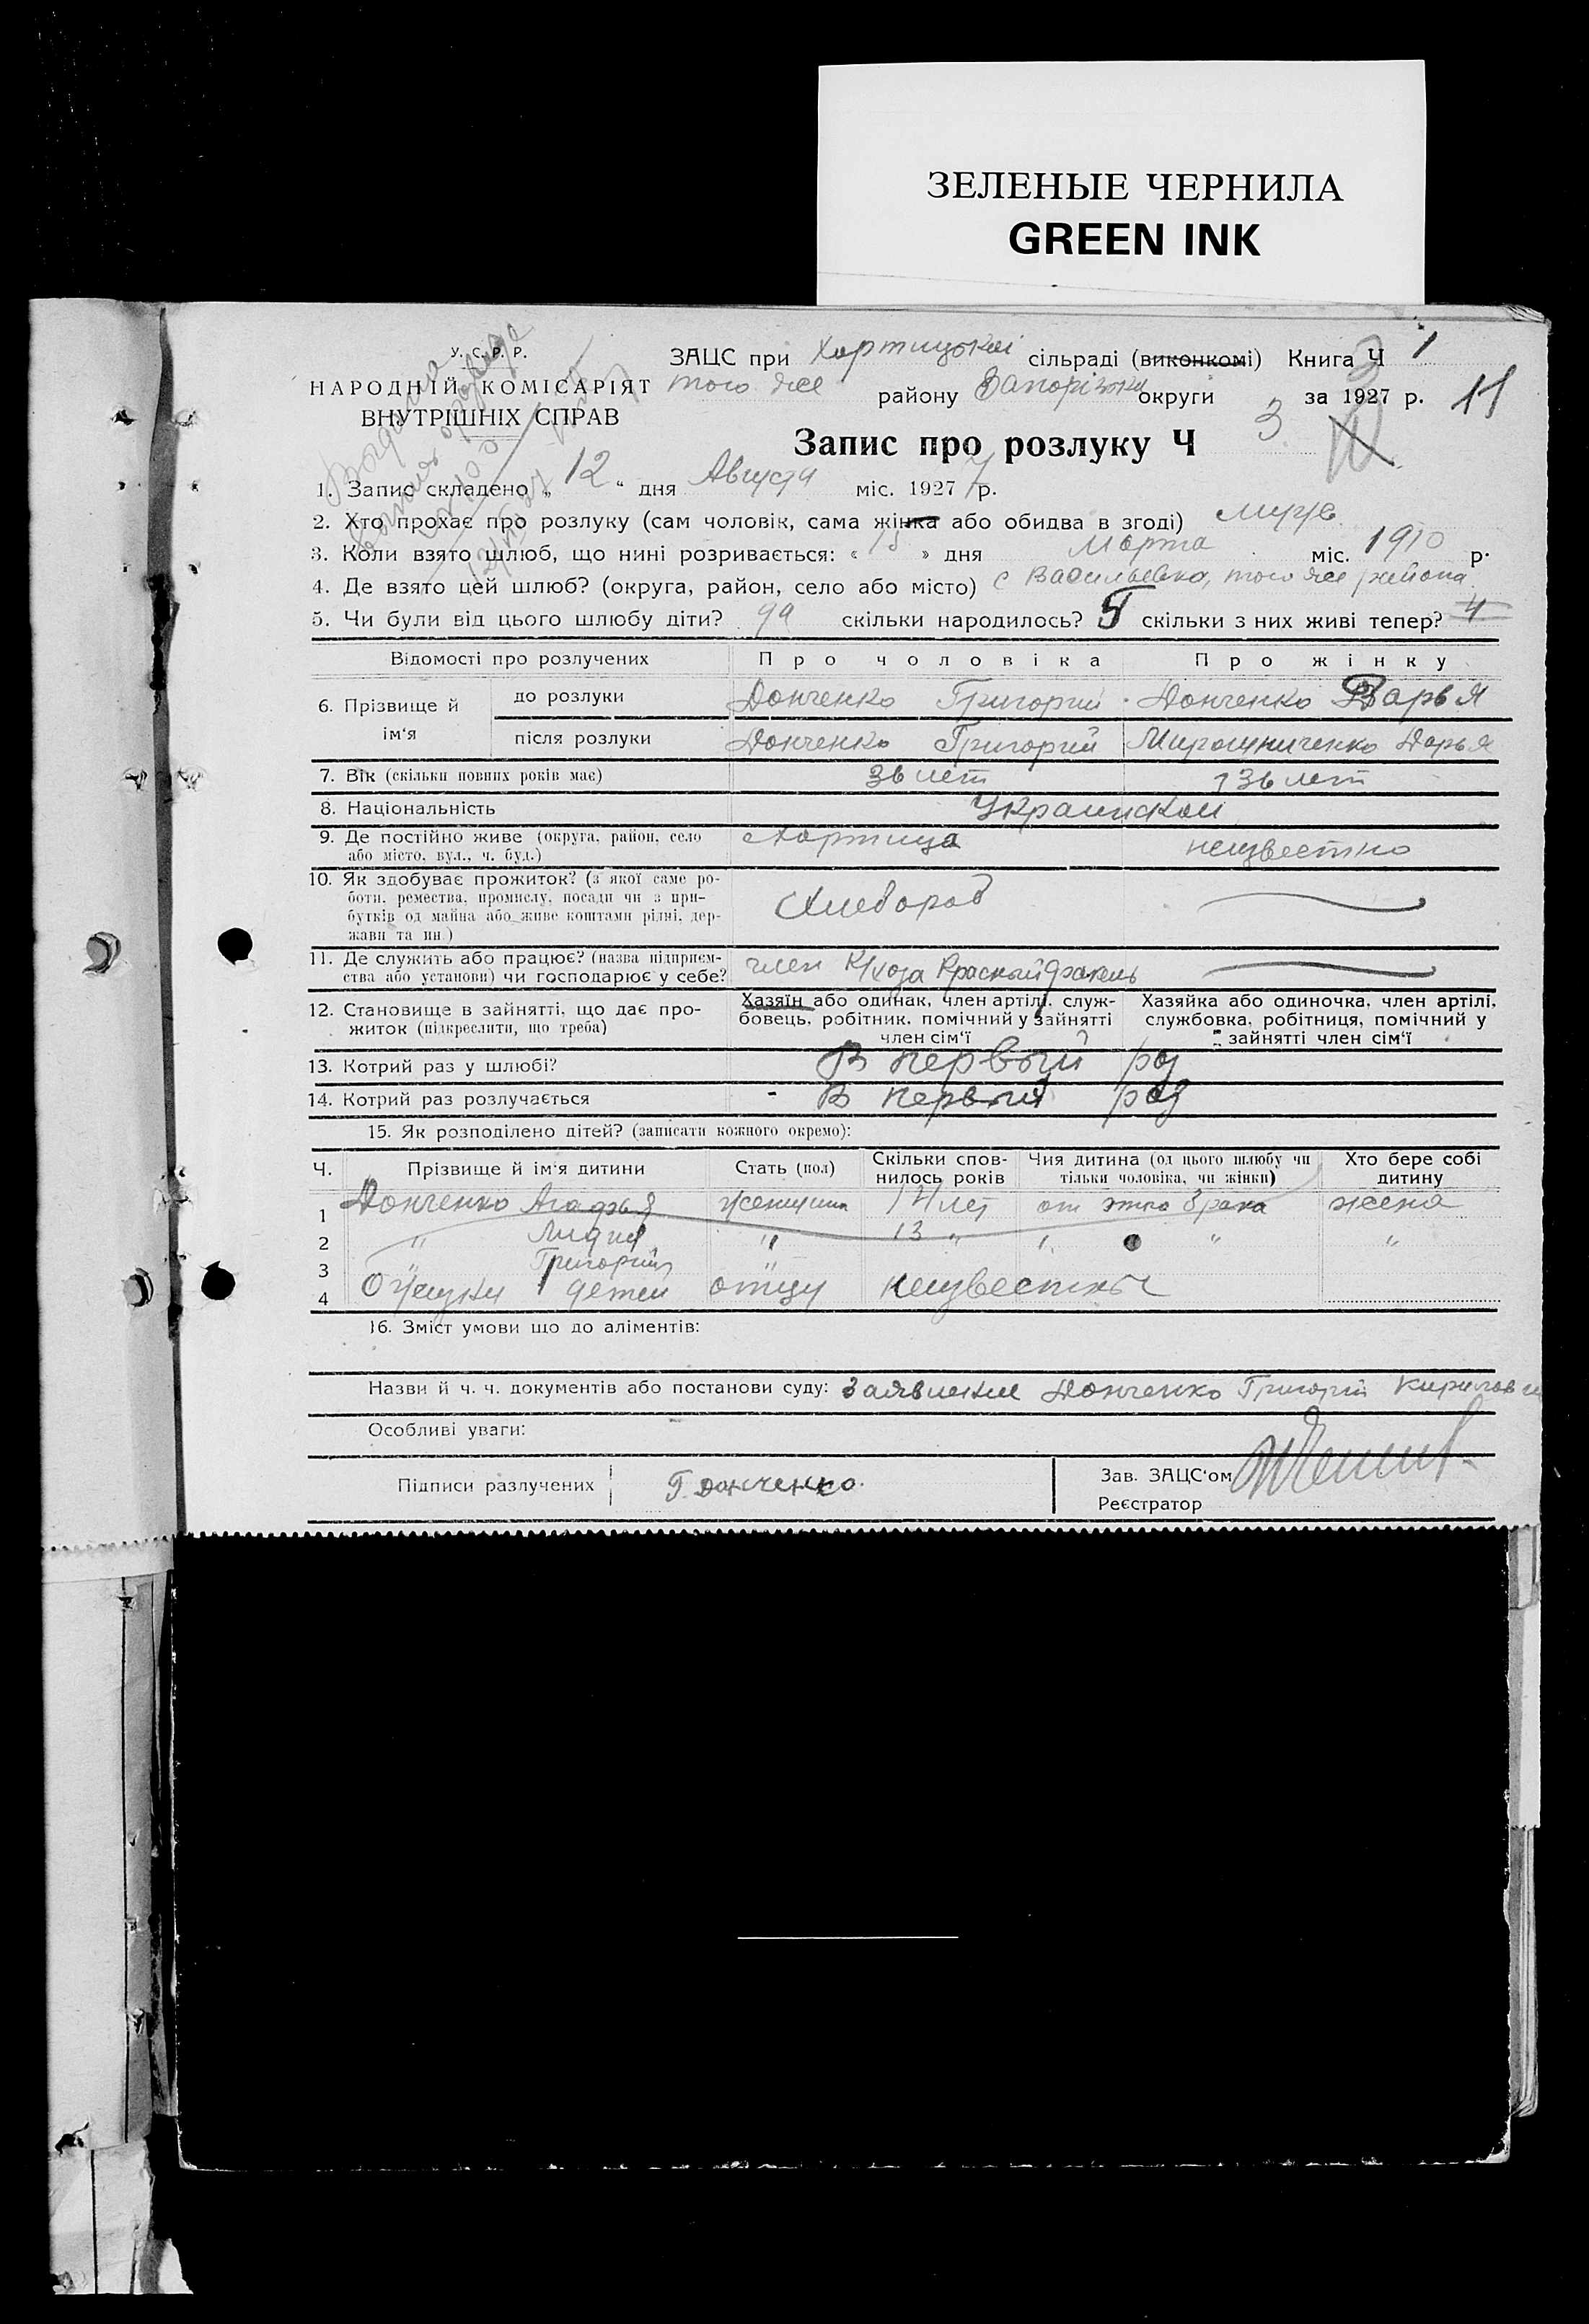 ЗЕЛЕНЫЕ ЧЕРНИЛА
GREEN INK
У. С. Р. Р.
НАРОДНІЙ КОМІСАРІЯТ
ВНУТРІШНІХ СПРАВ
ЗАЦС при Хортицокої сільраді (виконкомі) Книга Ч 1
того же району Запорізька округи за 1927 р. 11
Запис про розлуку Ч 3
1. Запис складено „ 12 “ дня Августа міс. 1927 р.
2. Хто прохає про розлуку (сам чоловік, сама жінка або обидва в згоді) муж
3. Коли взято шлюб, що нині розривається: « 15 » дня Марта міс. 1910 р.
4. Де взято цей шлюб? (округа, район, село або місто) с Васильевка, того же района
5. Чи були від цього шлюбу діти? да скільки народилось? 5 скільки з них живі тепер? 4
Відомості про розлучених Про чоловіка Про жінку
6. Прізвище й ім‘я
до розлуки Донченко Григорий Донченко Дарья
після розлуки Донченко Григорий Мирошниченко Дарья
7. Вік (скільки повних років має) 36 лет 36 лет
8. Національність Украинской
9. Де постійно живе (округа, район, село
або місто, вул., ч. буд.) Хортица неизвестно
10. Як здобуває прожиток? (з якої саме ро-
боти, ремества, промислу, посади чи з при-
бутків од майна або живе коштами рідні, дер-
жави та ин.) Хлебороб
11. Де служить або працює? (назва підприєм-
ства або установи) чи господарює у себе? член К/хоза Красный факель
12. Становище в зайнятті, що дає про-
житок (підкреслити, що треба)
Хазяїн або одинак, член артілі, служ-
бовець, робітник, помічний у зайнятті
член сім‘ї
Хазяйка або одиночка, член артілі,
службовка, робітниця, помічний у
зайнятті член сім‘ї
13. Котрий раз у шлюбі? В первый раз
14. Котрий раз розлучається В первый раз
15. Як розподілено дітей? (записати кожного окремо):
Ч. Прізвище й ім‘я дитини Стать (пол) Скільки спов-
нилось років Чия дитина (од цього шлюбу чи
тільки чоловіка, чи жінки) Хто бере собі
дитину
1 Донченко Агафья женщина лет от этого брака жена
2 " Лидия " 13 " " " "
3 " Григорий "
4 детей отцу неизвестно
16. Зміст умови що до аліментів:
Назви й ч. ч. документів або постанови суду: Заявление Донченко Григорий
Особливі уваги:
Підписи разлучених Г. Донченко.
Зав. ЗАЦС‘ом
Реєстратор